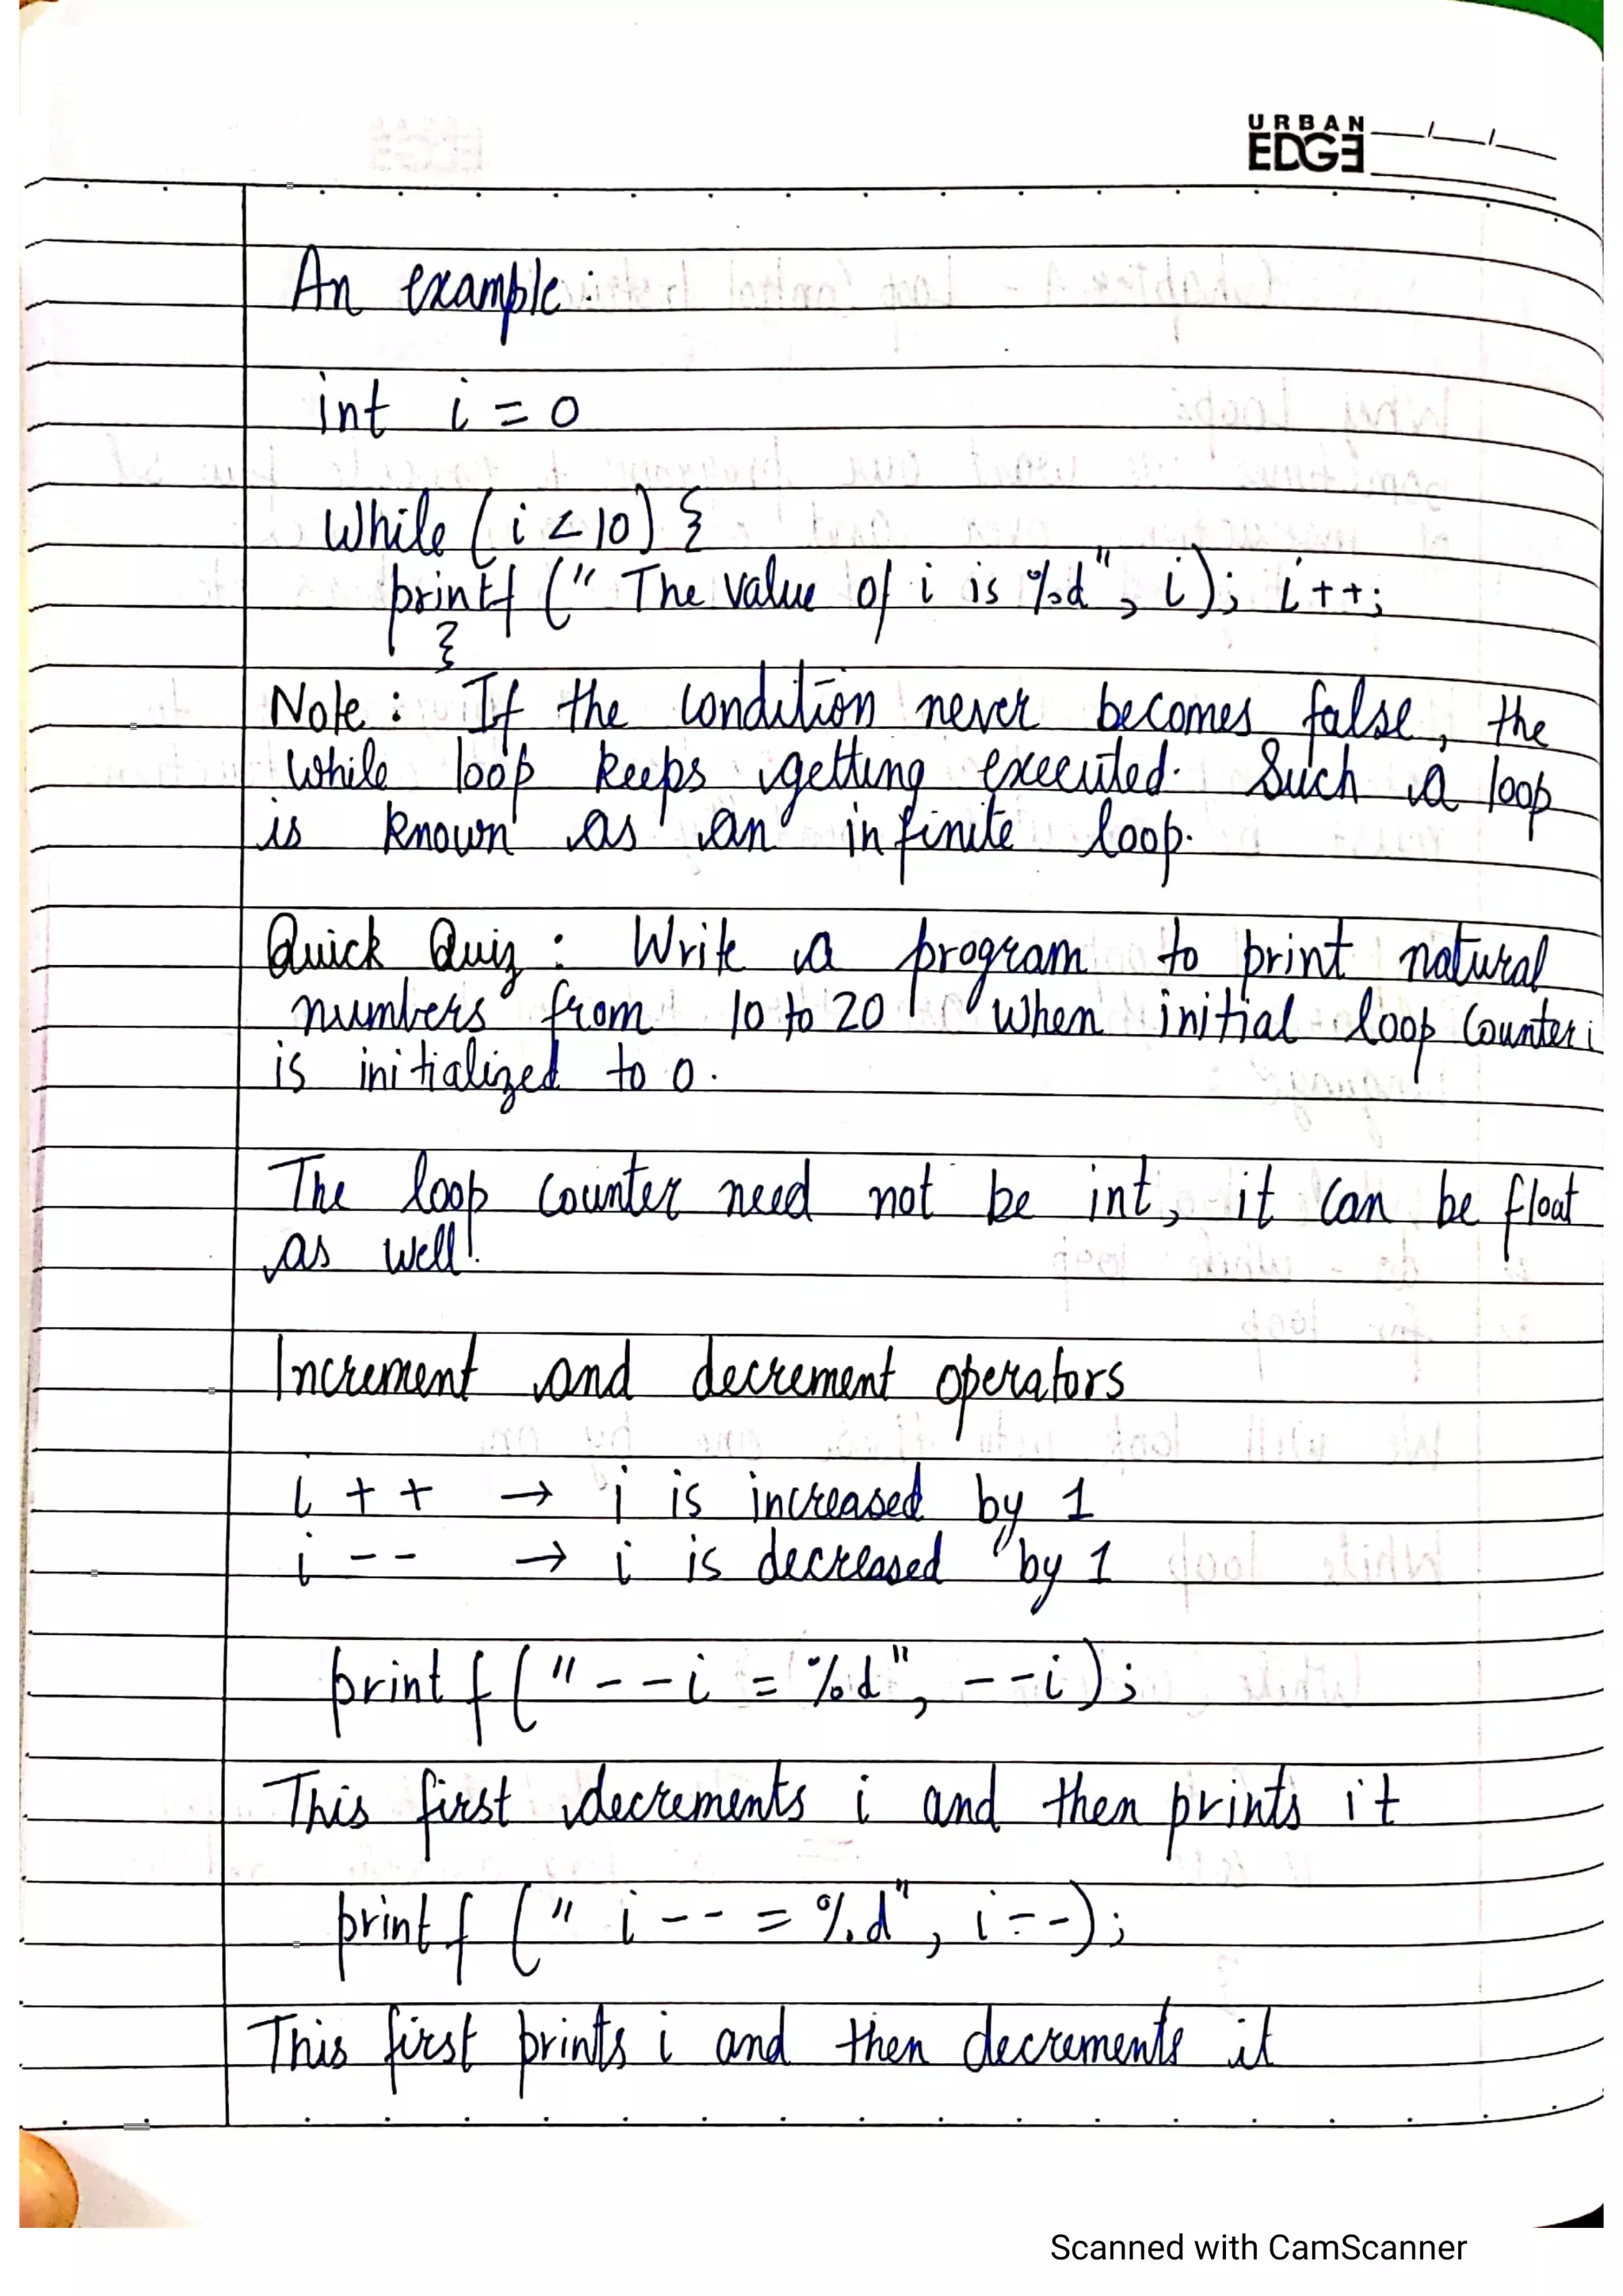 URBAN
EDGE
An example :
int i = 0
While ( i < 10) {
printf (" The value of i is %d", i); i++;
}
Note : If the condition never becomes false, the
while loop keeps getting executed. Such a loop
is known as an infinite loop.
Quick Quiz : Write a program to print natural
numbers from 10 to 20 when initial loop counter i
is initialized to 0.
The loop counter need not be int, it can be float
as well!
Increment and decrement operators
i + + → i is increased by 1
i - - → i is decreased by 1
printf (" - - i = %d", - - i);
This first decrements i and then prints it
printf (" i - - = %d", i - -);
This first prints i and then decrements it
Scanned with CamScanner